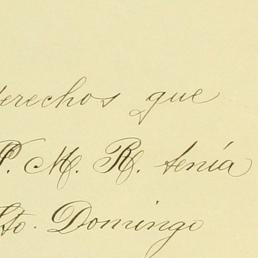 derechos que
P. M. R. tenía
Sto. Domingo